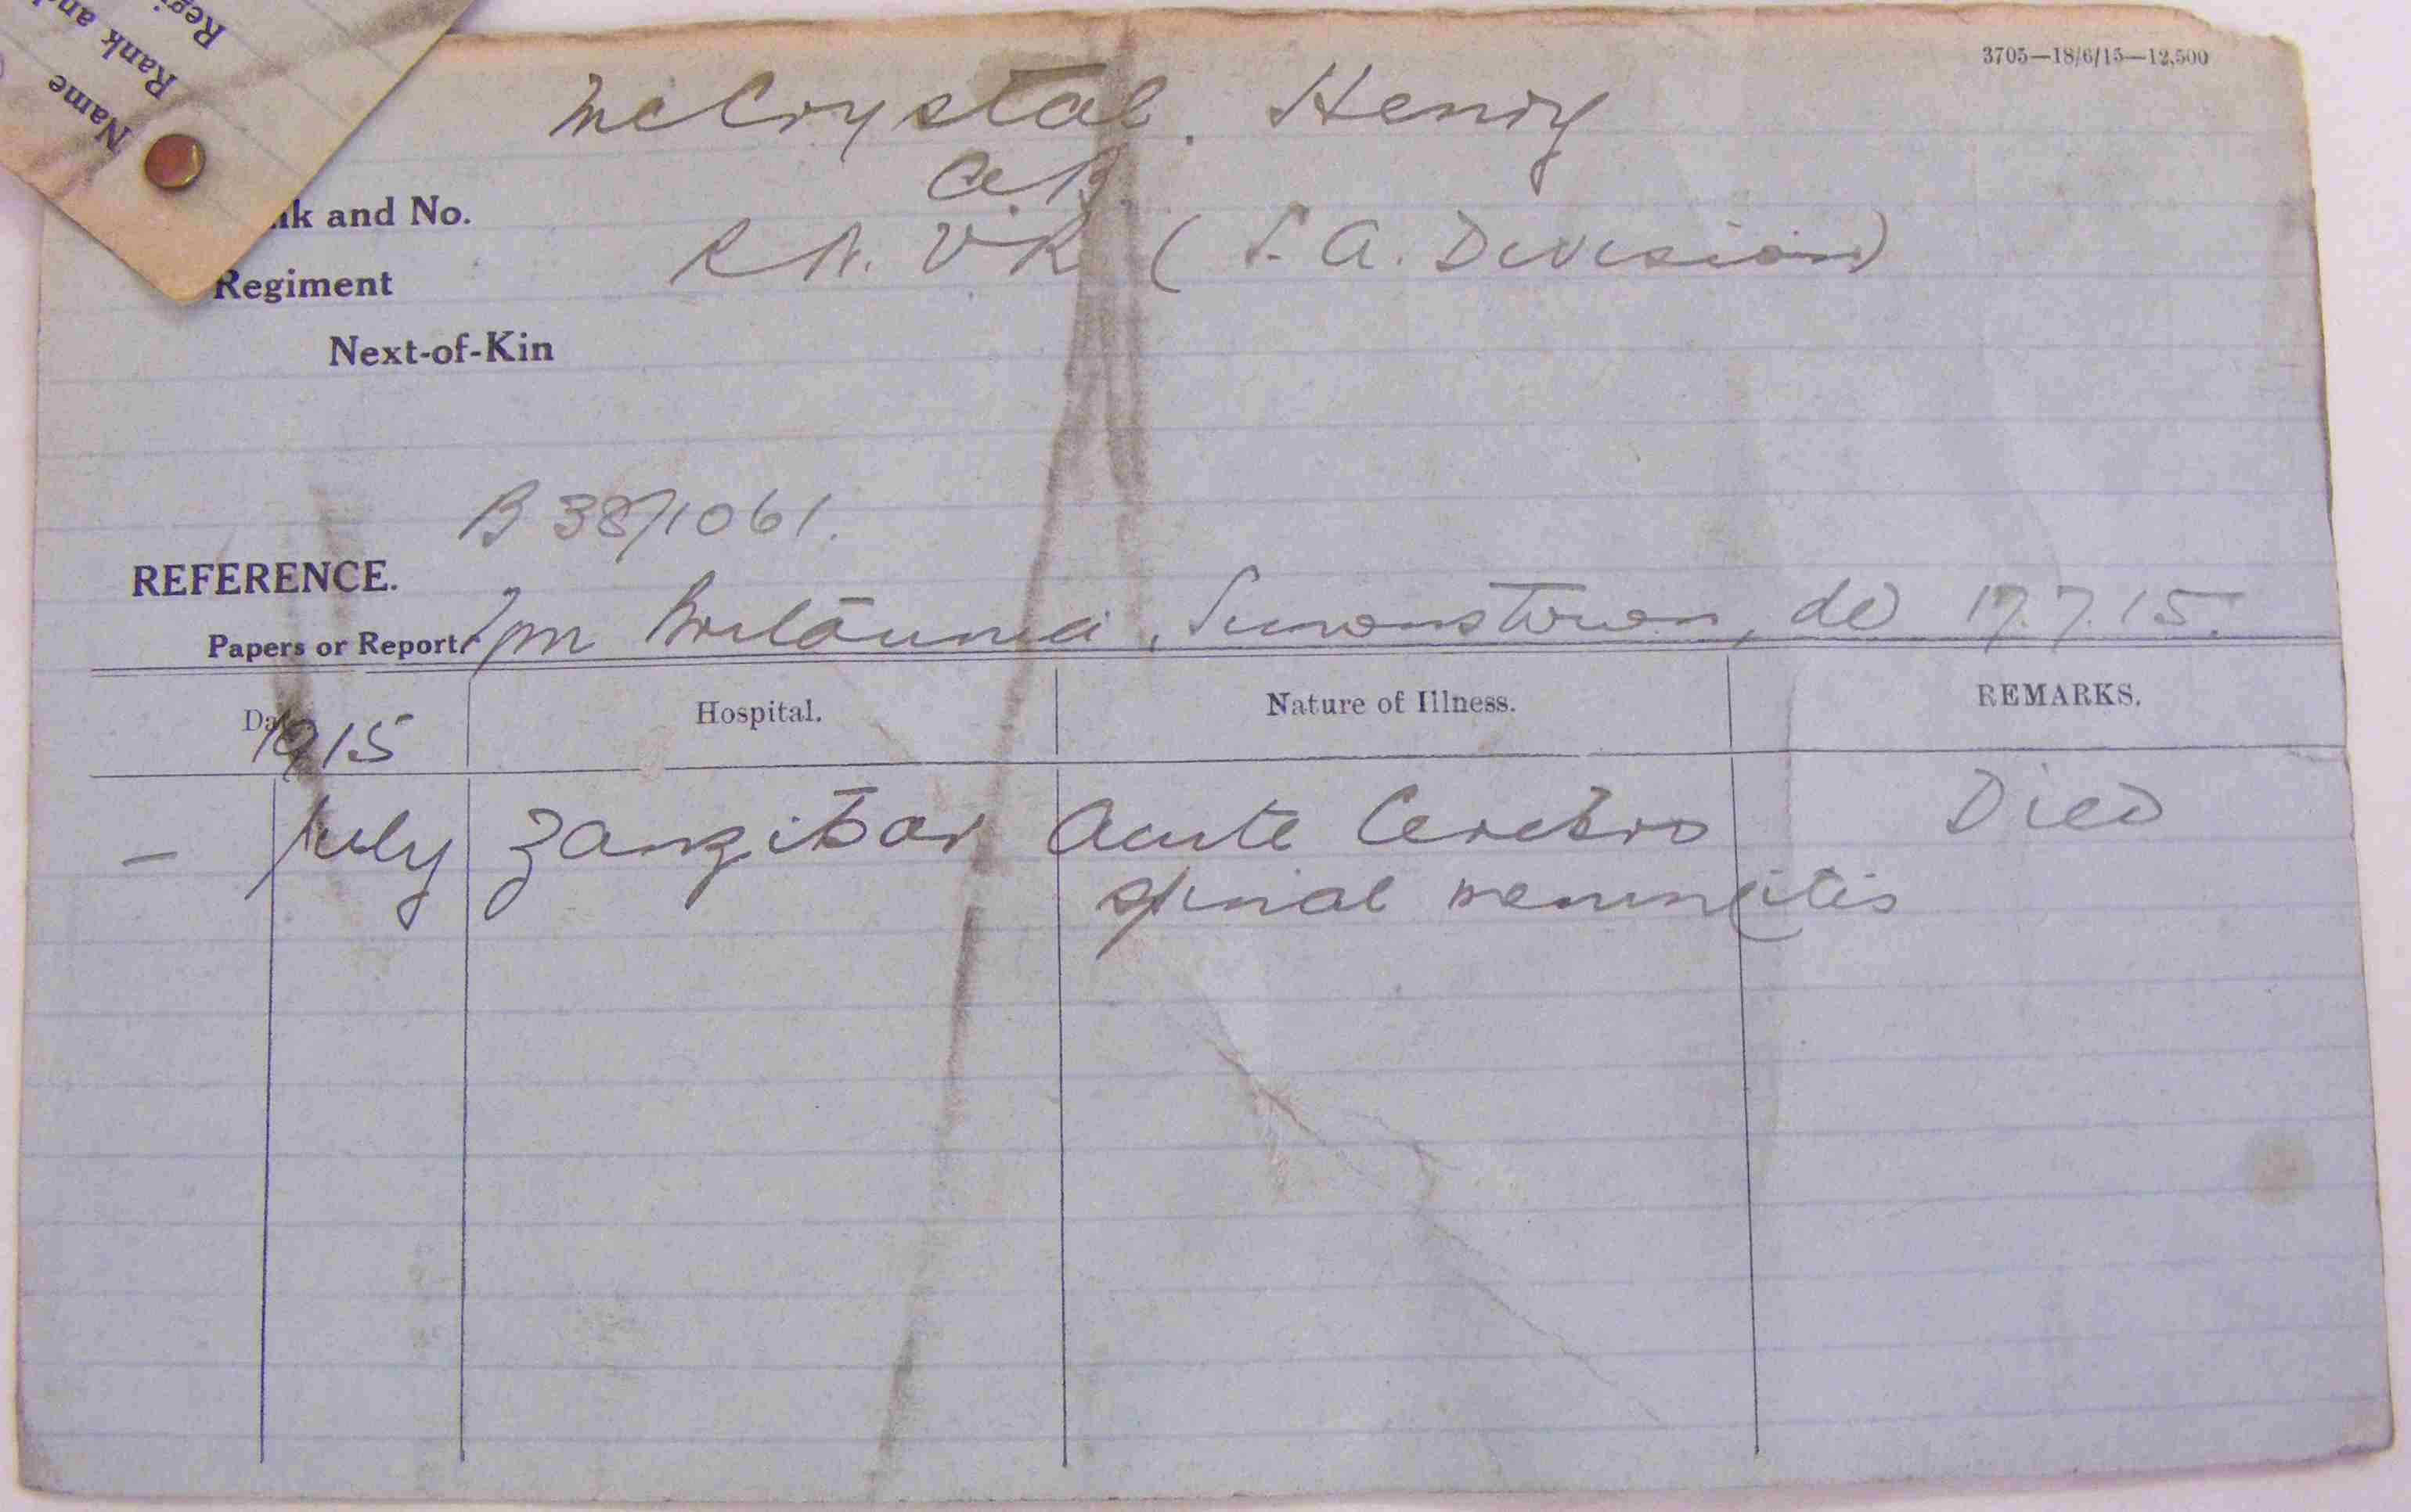 Name
Rank an
Regi
3705—18/6/15—12,500
McCrystal. Henry
k and No. A.B.
Regiment R.N.V.R (S.A. Division)
Next-of-Kin
B 38/1061.
REFERENCE.
Papers or Report Britannia, Simonstown, dd 17.7.15.
Da 1915 Hospital. Nature of Illness. REMARKS.
– July Zanzibar Acute Cerebro Died
spinal meningitis